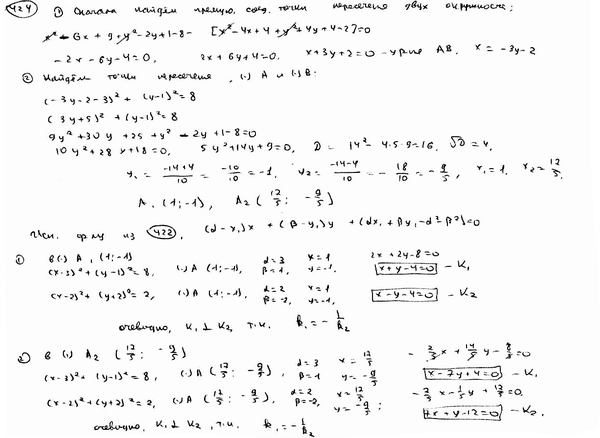 424 ① Сначала найдём прямую, соед. точки пересечения двух окружностей:
x² - 6x + 9 + y² - 2y + 1 - 8 - [x² - 4x + 4 + y² + 4y + 4 - 2] = 0
-2x - 6y - 4 = 0, 2x + 6y + 4 = 0. x + 3y + 2 = 0 - ур-ие AB. x = -3y - 2
② Найдём точки пересечения, (·) A и (·) B:
(-3y - 2 - 3)² + (y-1)² = 8
(3y + 5)² + (y-1)² = 8
9y² + 30y + 25 + y² - 2y + 1 - 8 = 0
10y² + 28y + 18 = 0, 5y² + 14y + 9 = 0, D = 14² - 4·5·9 = 16. √D = 4,
y₁ = (-14+4)/10 = -10/10 = -1, y₂ = (-14-4)/10 = -18/10 = -9/5, x₁ = 1. x₂ = 17/5.
A₁ (1; -1), A₂ (17/5; -9/5)
из 422, (α - x₁)x + (β - y₁)y + (αx₁ + βy₁ - α² - β²) = 0
① В (·) A, (1; -1) 2x + 2y - 8 = 0
(x-3)² + (y-1)² = 8, (·) A (1; -1), α = 3 β = 1, x = 1 y = -1, x + y - 4 = 0 - K₁
(x-2)² + (y+2)² = 2, (·) A (1; -1), α = 2 β = -2, x = 1 y = -1, x - y - 4 = 0 - K₂
очевидно, K₁ ⊥ K₂, т.к. k₁ = -1/k₂
② В (·) A₂ (17/5; -9/5)
(x-3)² + (y-1)² = 8, (·) A (17/5; -9/5), α = 3 β = 1 x = 17/5 y = -9/5 x - 7y + 4 = 0 - K₁
(x-2)² + (y+2)² = 2, (·) A (17/5; -9/5), α = 2 β = -2, x = 17/5 y = -9/5; 7x + y - 12 = 0 - K₂.
очевидно, K₁ ⊥ K₂, т.к. k₁ = -1/k₂